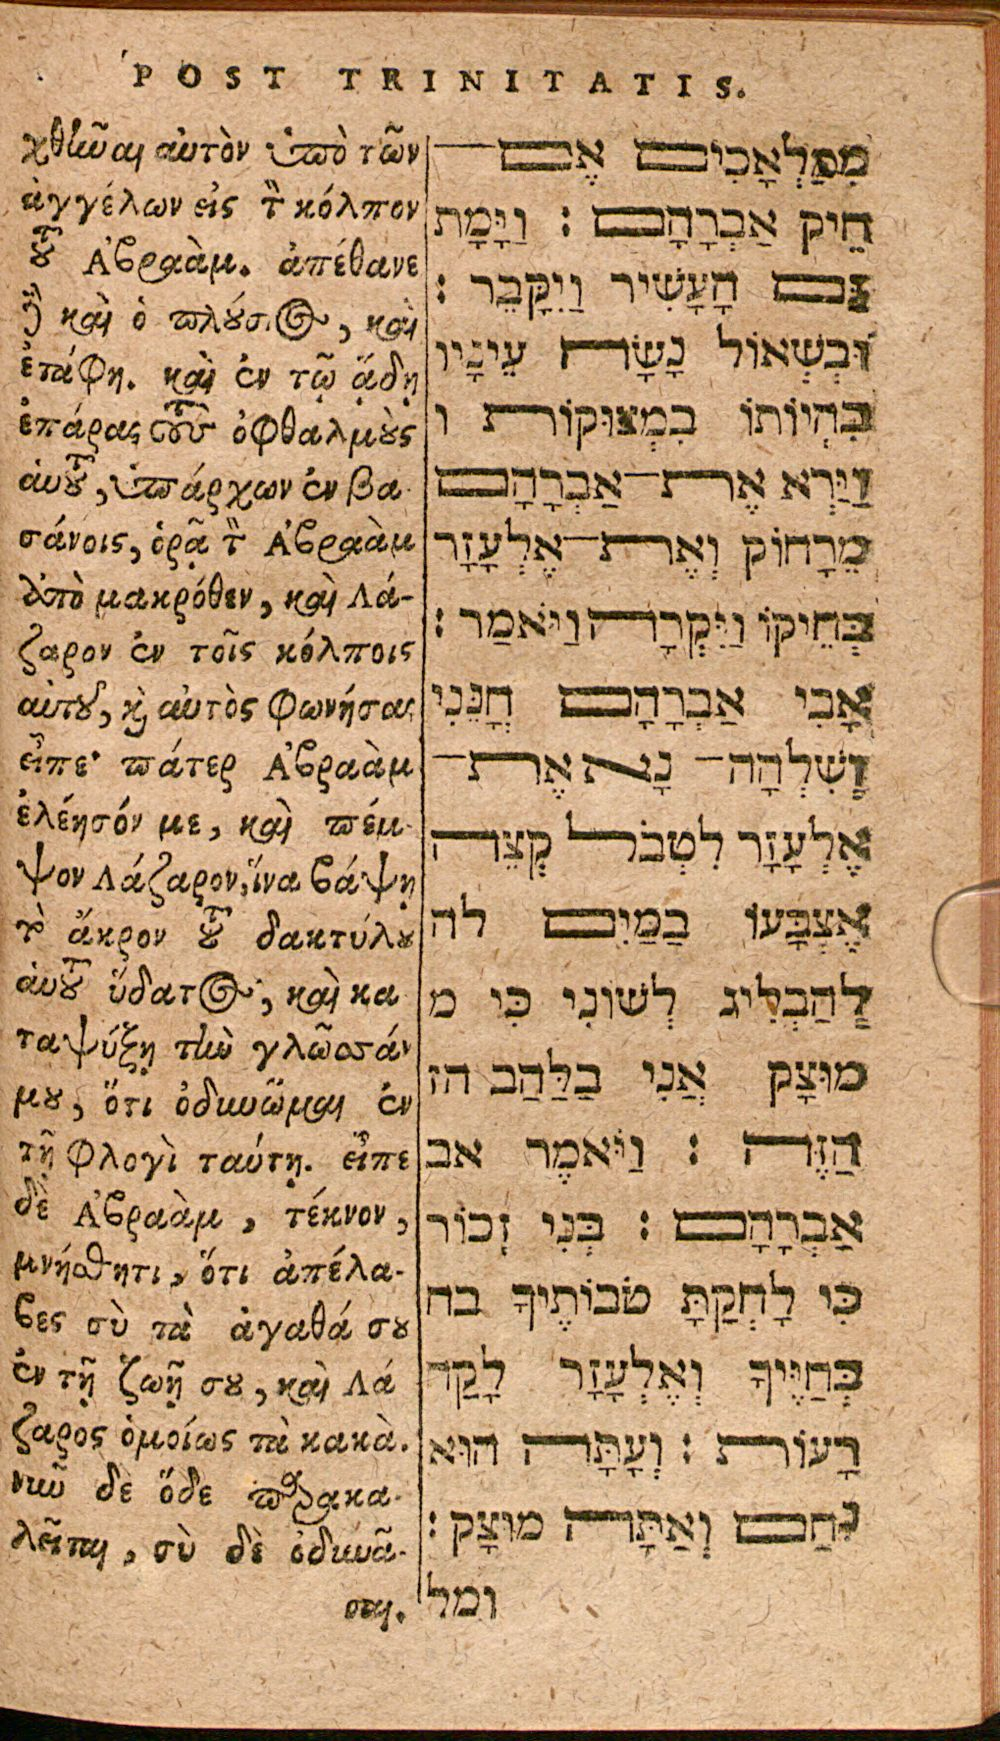 POST TRINITATIS.
χθῆναι αὐτὸν ὑπὸ τῶν
ἀγγέλων εἰς τ̀ κόλπον
τοῦ Ἀβραάμ. ἀπέθανε
δὲ καὶ ὁ πλούσιος, καὶ
ἐτάφη. καὶ ἐν τῷ ᾅδῃ
ἐπάρας τοὺς ὀφθαλμοὺς
αὑτοῦ, ὑπάρχων ἐν βα
σάνοις, ὁρᾷ τ̀ Ἀβραὰμ
ἀπὸ μακρόθεν, καὶ Λά-
ζαρον ἐν τοῖς κόλποις
αὐτοῦ, κὶ αὐτὸς φωνήσας
εἶπε· πάτερ Ἀβραὰμ
ἐλέησόν με, καὶ πέμ-
ψον Λάζαρον, ἵνα βάψῃ
τὸ ἄκρον τοῦ δακτύλου
αὑτοῦ ὕδατος, καὶ κα
ταψύξῃ τὴν γλῶσσάν
μου, ὅτι ὀδυνῶμαι ἐν
τῇ φλογὶ ταύτῃ. εἶπε
δὲ Ἀβραὰμ, τέκνον,
μνήσθητι, ὅτι ἀπέλα-
βες σὺ τὰ ἀγαθά σου
ἐν τῇ ζωῇ σου, καὶ Λά
ζαρος ὁμοίως τὰ κακὰ.
νῦν δὲ ὅδε παρακα-
λεῖται, σὺ δὲ ὀδυνᾶ-
σαι.
מִמַּלְאָכִים אֶם־
חֵיק אַבְרָהָם : וַיָּמָת
גַּם הָעָשִׁיר וַיִּקָּבֵר :
וּבִשְׁאוֹל נָשָׂה עֵינָיו
בִּהְיוֹתוֹ בִמְצוּקוֹת ו
וַיַּרְא אֶת־אַבְרָהָם
מֵרָחוֹק וְאֶת־אֶלְעָזָר
בְּחֵיקוֹ וַיִּקְרָה וַיֹּאמַר :
אָבִי אַבְרָהָם חָנֵּנִי
וָשִׁלְחָה־ נָא אֶת־
אֶלְעָזָר לִטְבֹל קְצֵה
אֶצְבָּעוֹ בַמַּיִם לה
לְהַבְלִיג לְשׁוֹנִי כִּי מ
מוּצָק אֲנִי בַלַּהַב הז
הַזֶּה : וַיֹּאמֶר אב
אַבְרָהָם : בְּנִי זְכוֹר
כִּי לָקַחְתָּ טֹבוֹתֶיךָ בח
בְּחַיֶּיךָ וְאֶלְעָזָר לָקַח
רָעוֹת : וְעָתָּה הוּא
נִחַם וְאַתָּה מוּצָק :
ומל